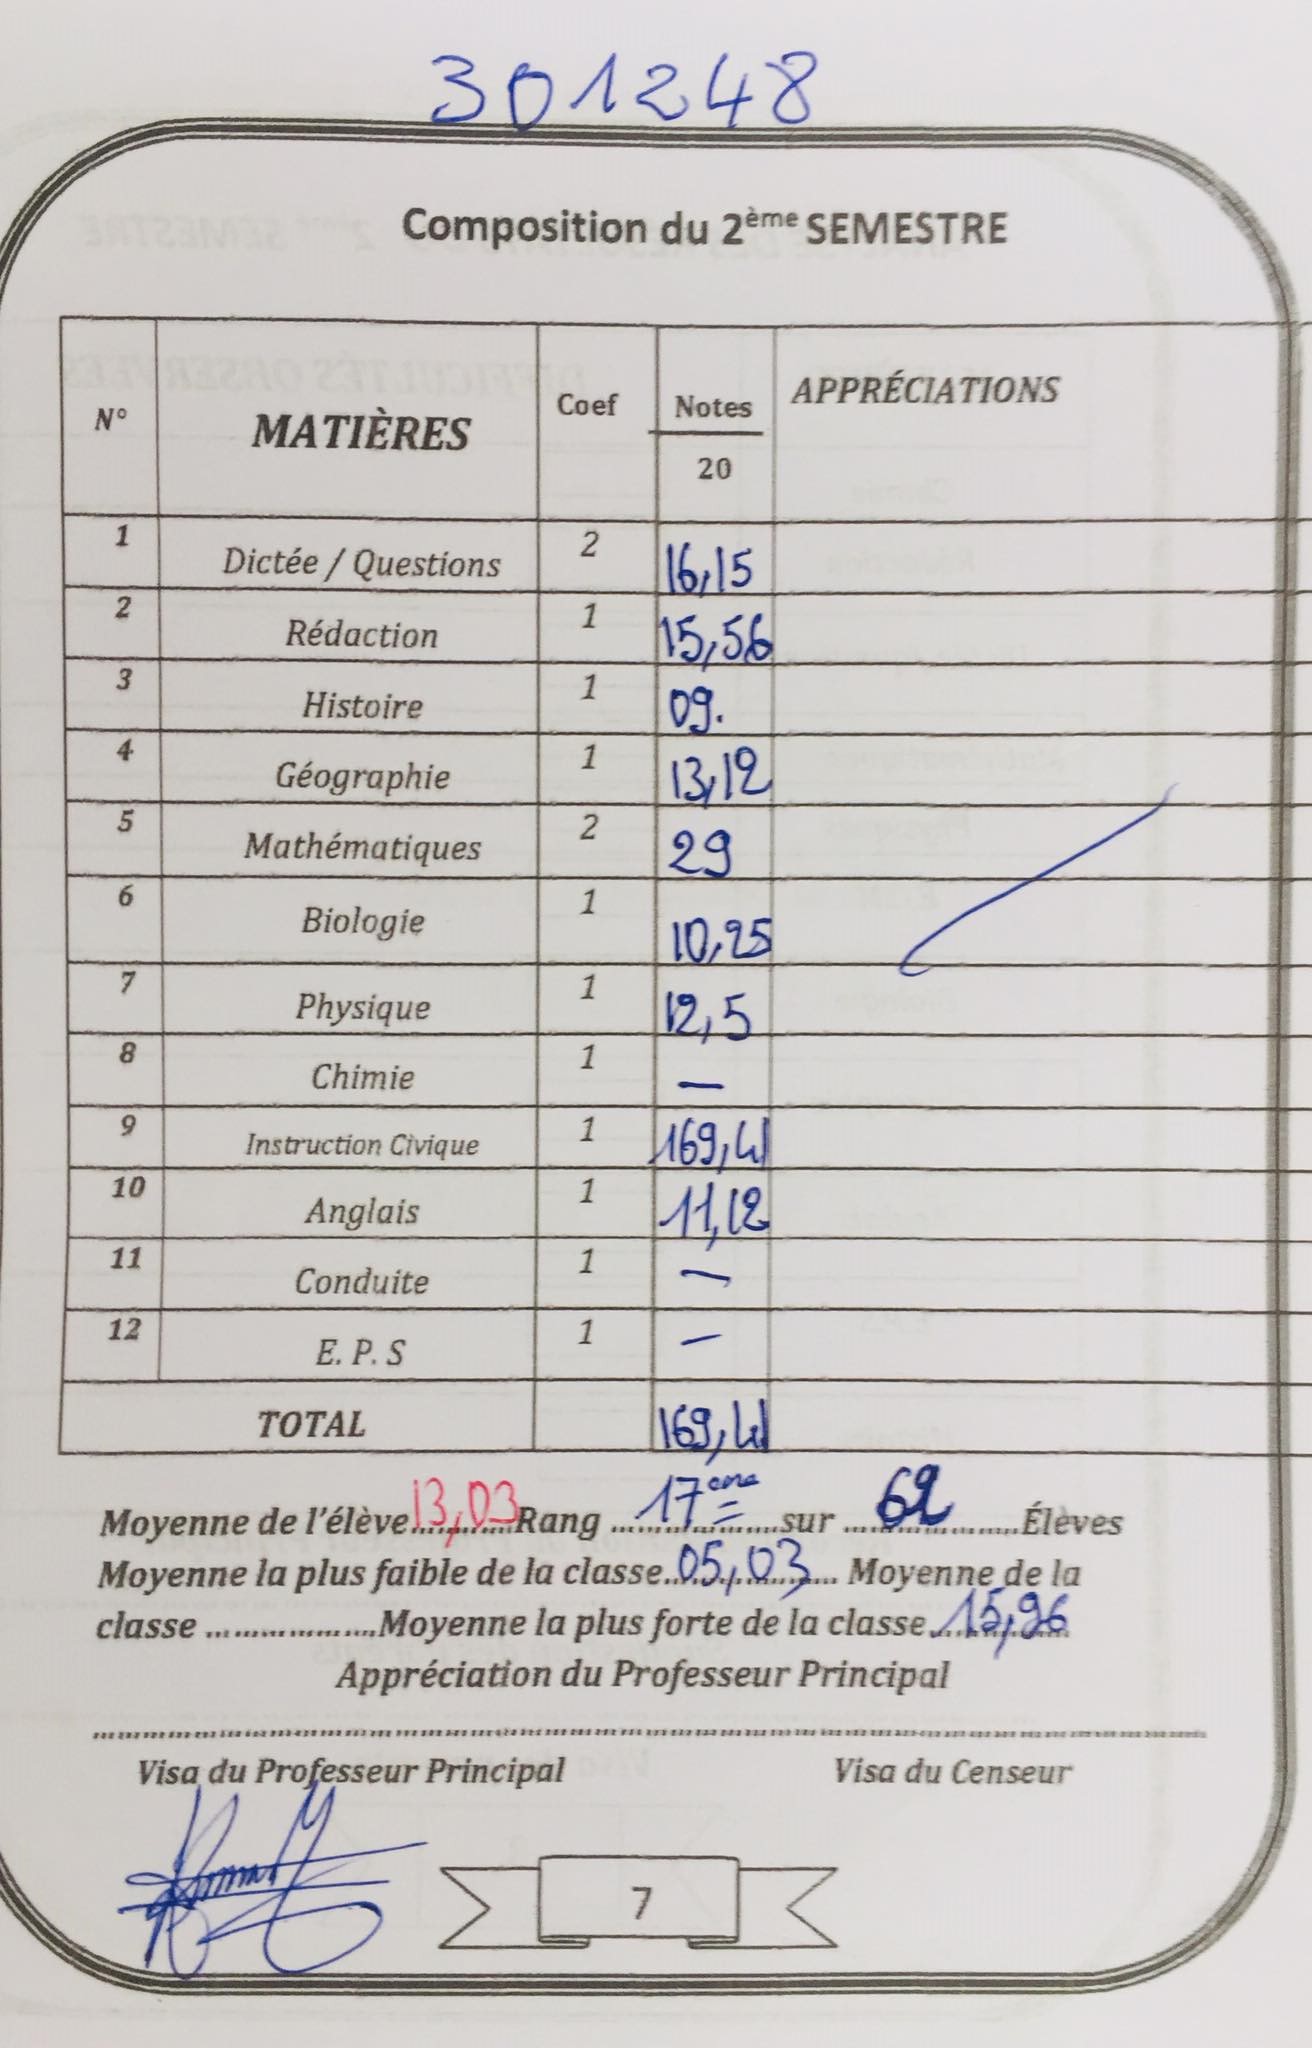 301248
Composition du 2ème SEMESTRE
N° MATIÈRES Coef Notes 20 APPRÉCIATIONS
1 Dictée / Questions 2 16,15
2 Rédaction 1 15,56
3 Histoire 1 09.
4 Géographie 1 13,12
5 Mathématiques 2 29
6 Biologie 1 10,25
7 Physique 1 12,5
8 Chimie 1 —
9 Instruction Civique 1 169,41
10 Anglais 1 11,12
11 Conduite 1 —
12 E. P. S 1 —
TOTAL 169,41
Moyenne de l'élève 13,03 Rang 17ème sur 62 Élèves
Moyenne la plus faible de la classe 05,03 Moyenne de la
classe .................. Moyenne la plus forte de la classe 15,96
Appréciation du Professeur Principal
Visa du Professeur Principal Visa du Censeur
7